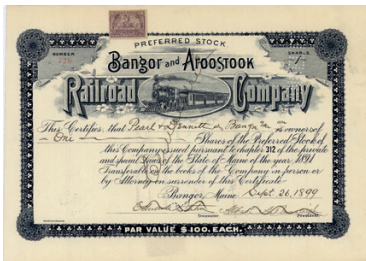 PREFERRED STOCK
NUMBER
SHARE
1
Bangor and Aroostook
Railroad Company
This Certifies that Pearl & Dennett of Bangor Me is owner of
One Shares of the Preferred Stock of
this Company issued pursuant to chapter 312 of the private
and special laws of the State of Maine of the year 1891
Transferable on the books of the Company in person or
by Attorney on surrender of this Certificate
Bangor, Maine Sept. 26, 1899
Treasurer
President
PAR VALUE $100. EACH.